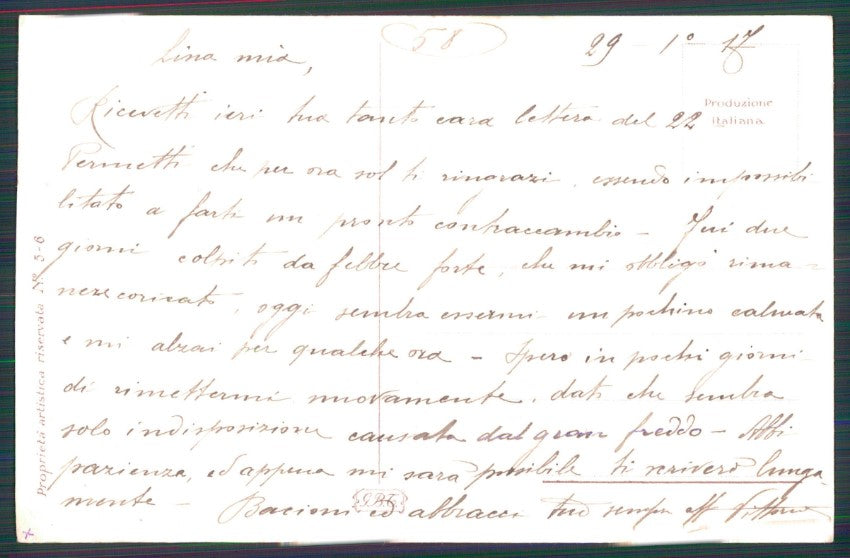 58
29 - 1º - 17
Lina mia,
Produzione
italiana
Ricevetti ieri tua tanto cara lettera del 22
Permetti che per ora sol ti ringrazi, essendo impossibi
litato a farti un pronto contraccambio - Fui due
giorni colpito da febbre forte, che mi obbligò rima-
nere coricato, oggi sembra essermi un pochino calmata
e mi alzai per qualche ora - Spero in pochi giorni
di rimettermi nuovamente, dato che sembra
solo indisposizione causata dal gran freddo - Abbi
pazienza, ed appena mi sarà possibile ti scriverò lunga
mente - Bacioni ed abbracci tuo sempre aff Vittorio
Proprietà artistica riservata Nº 5-6
x